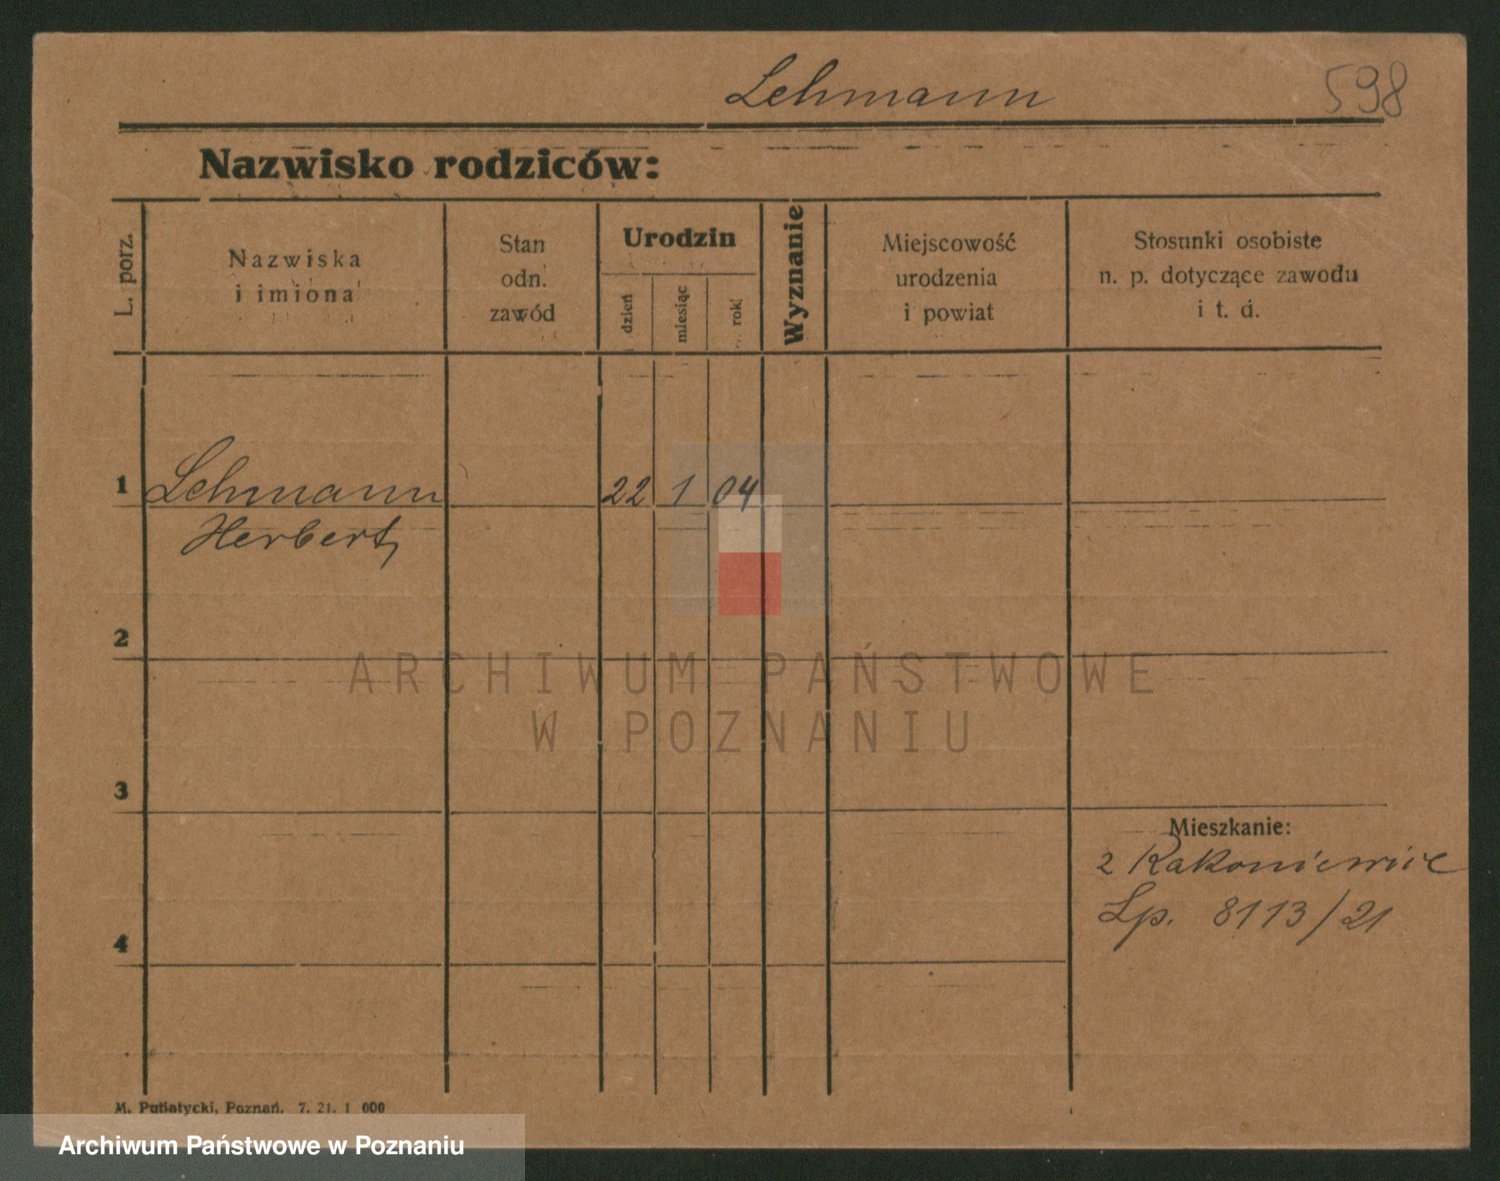 Lehmann
598
Nazwisko rodziców:
L. porz.
Nazwiska
i imiona
Stan
odn.
zawód
Urodzin
dzień
miesiąc
rok
Wyznanie
Miejscowość
urodzenia
i powiat
Stosunki osobiste
n. p. dotyczące zawodu
i t. d.
1 Lehmann 22 1 04
Herbert
2
ARCHIWUM PAŃSTWOWE
W POZNANIU
3
Mieszkanie:
2 Rakoniewice
Lp. 8113/21
4
M. Putiatycki, Poznań. 7. 21. 1 000
Archiwum Państwowe w Poznaniu